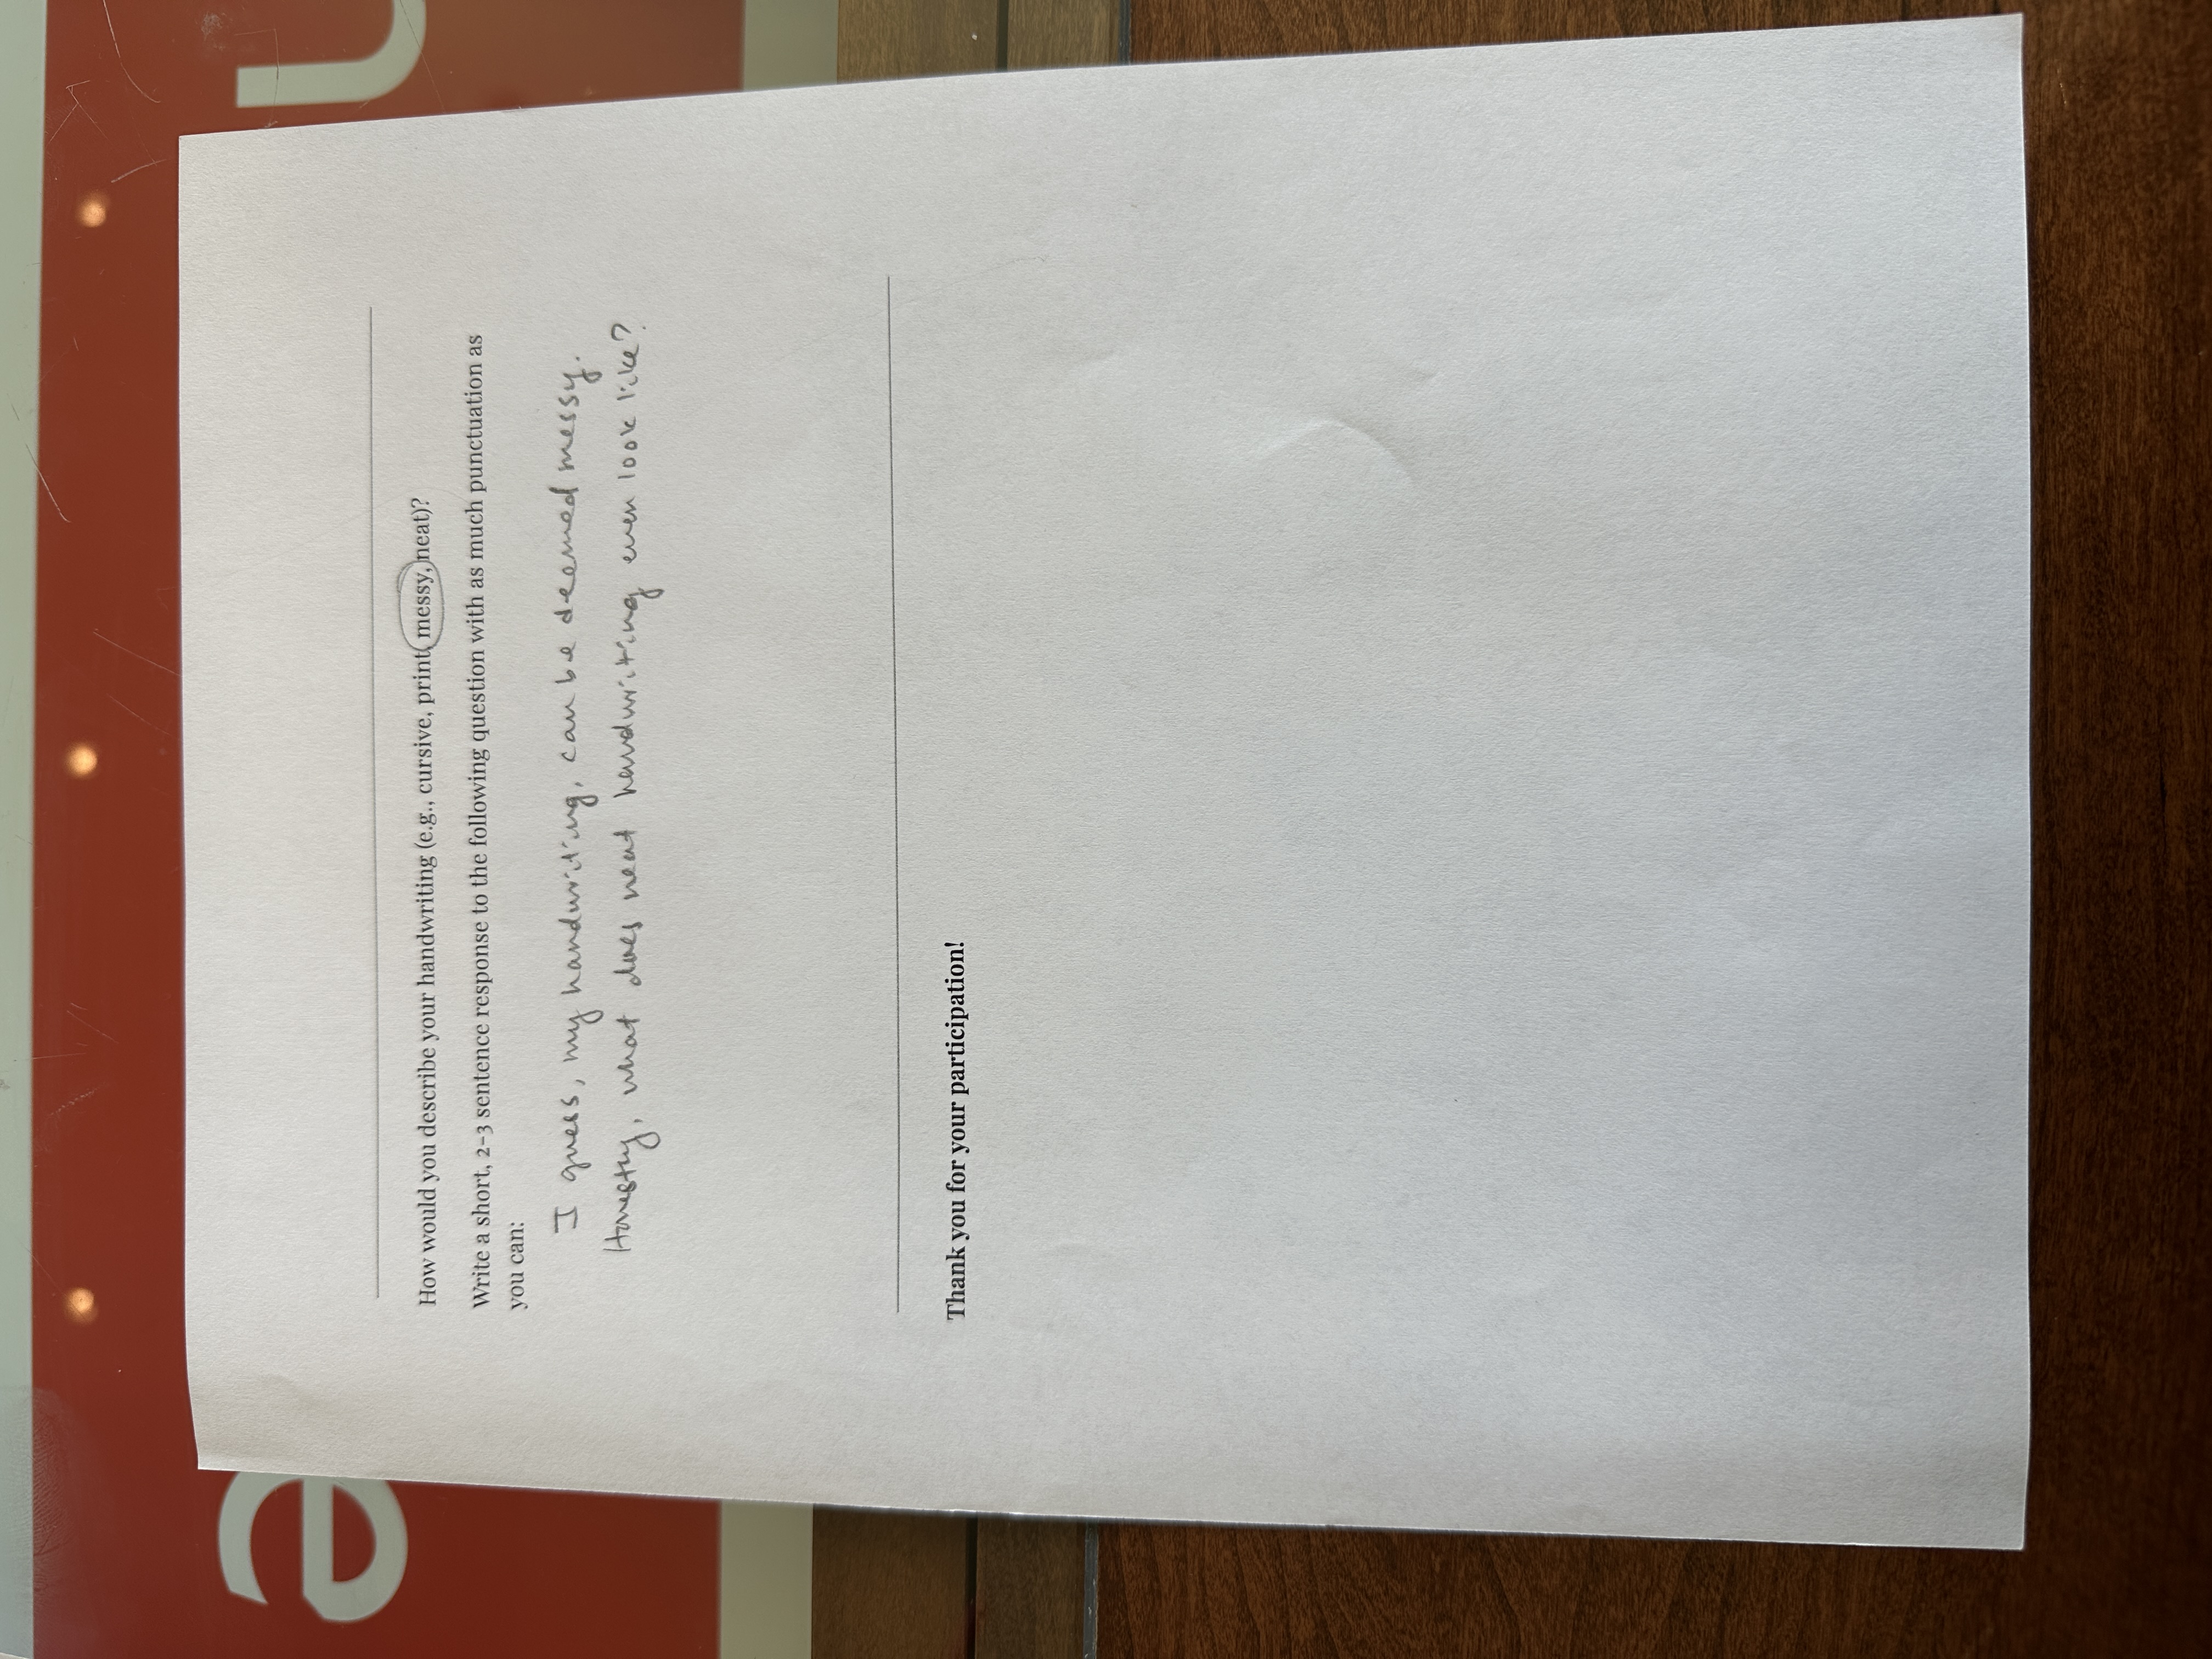 How would you describe your handwriting (e.g., cursive, print, messy, neat)?
Write a short, 2-3 sentence response to the following question with as much punctuation as
you can:
I guess, my handwriting, can be deemed messy.
Honestly, what does neat handwriting even look like?
Thank you for your participation!